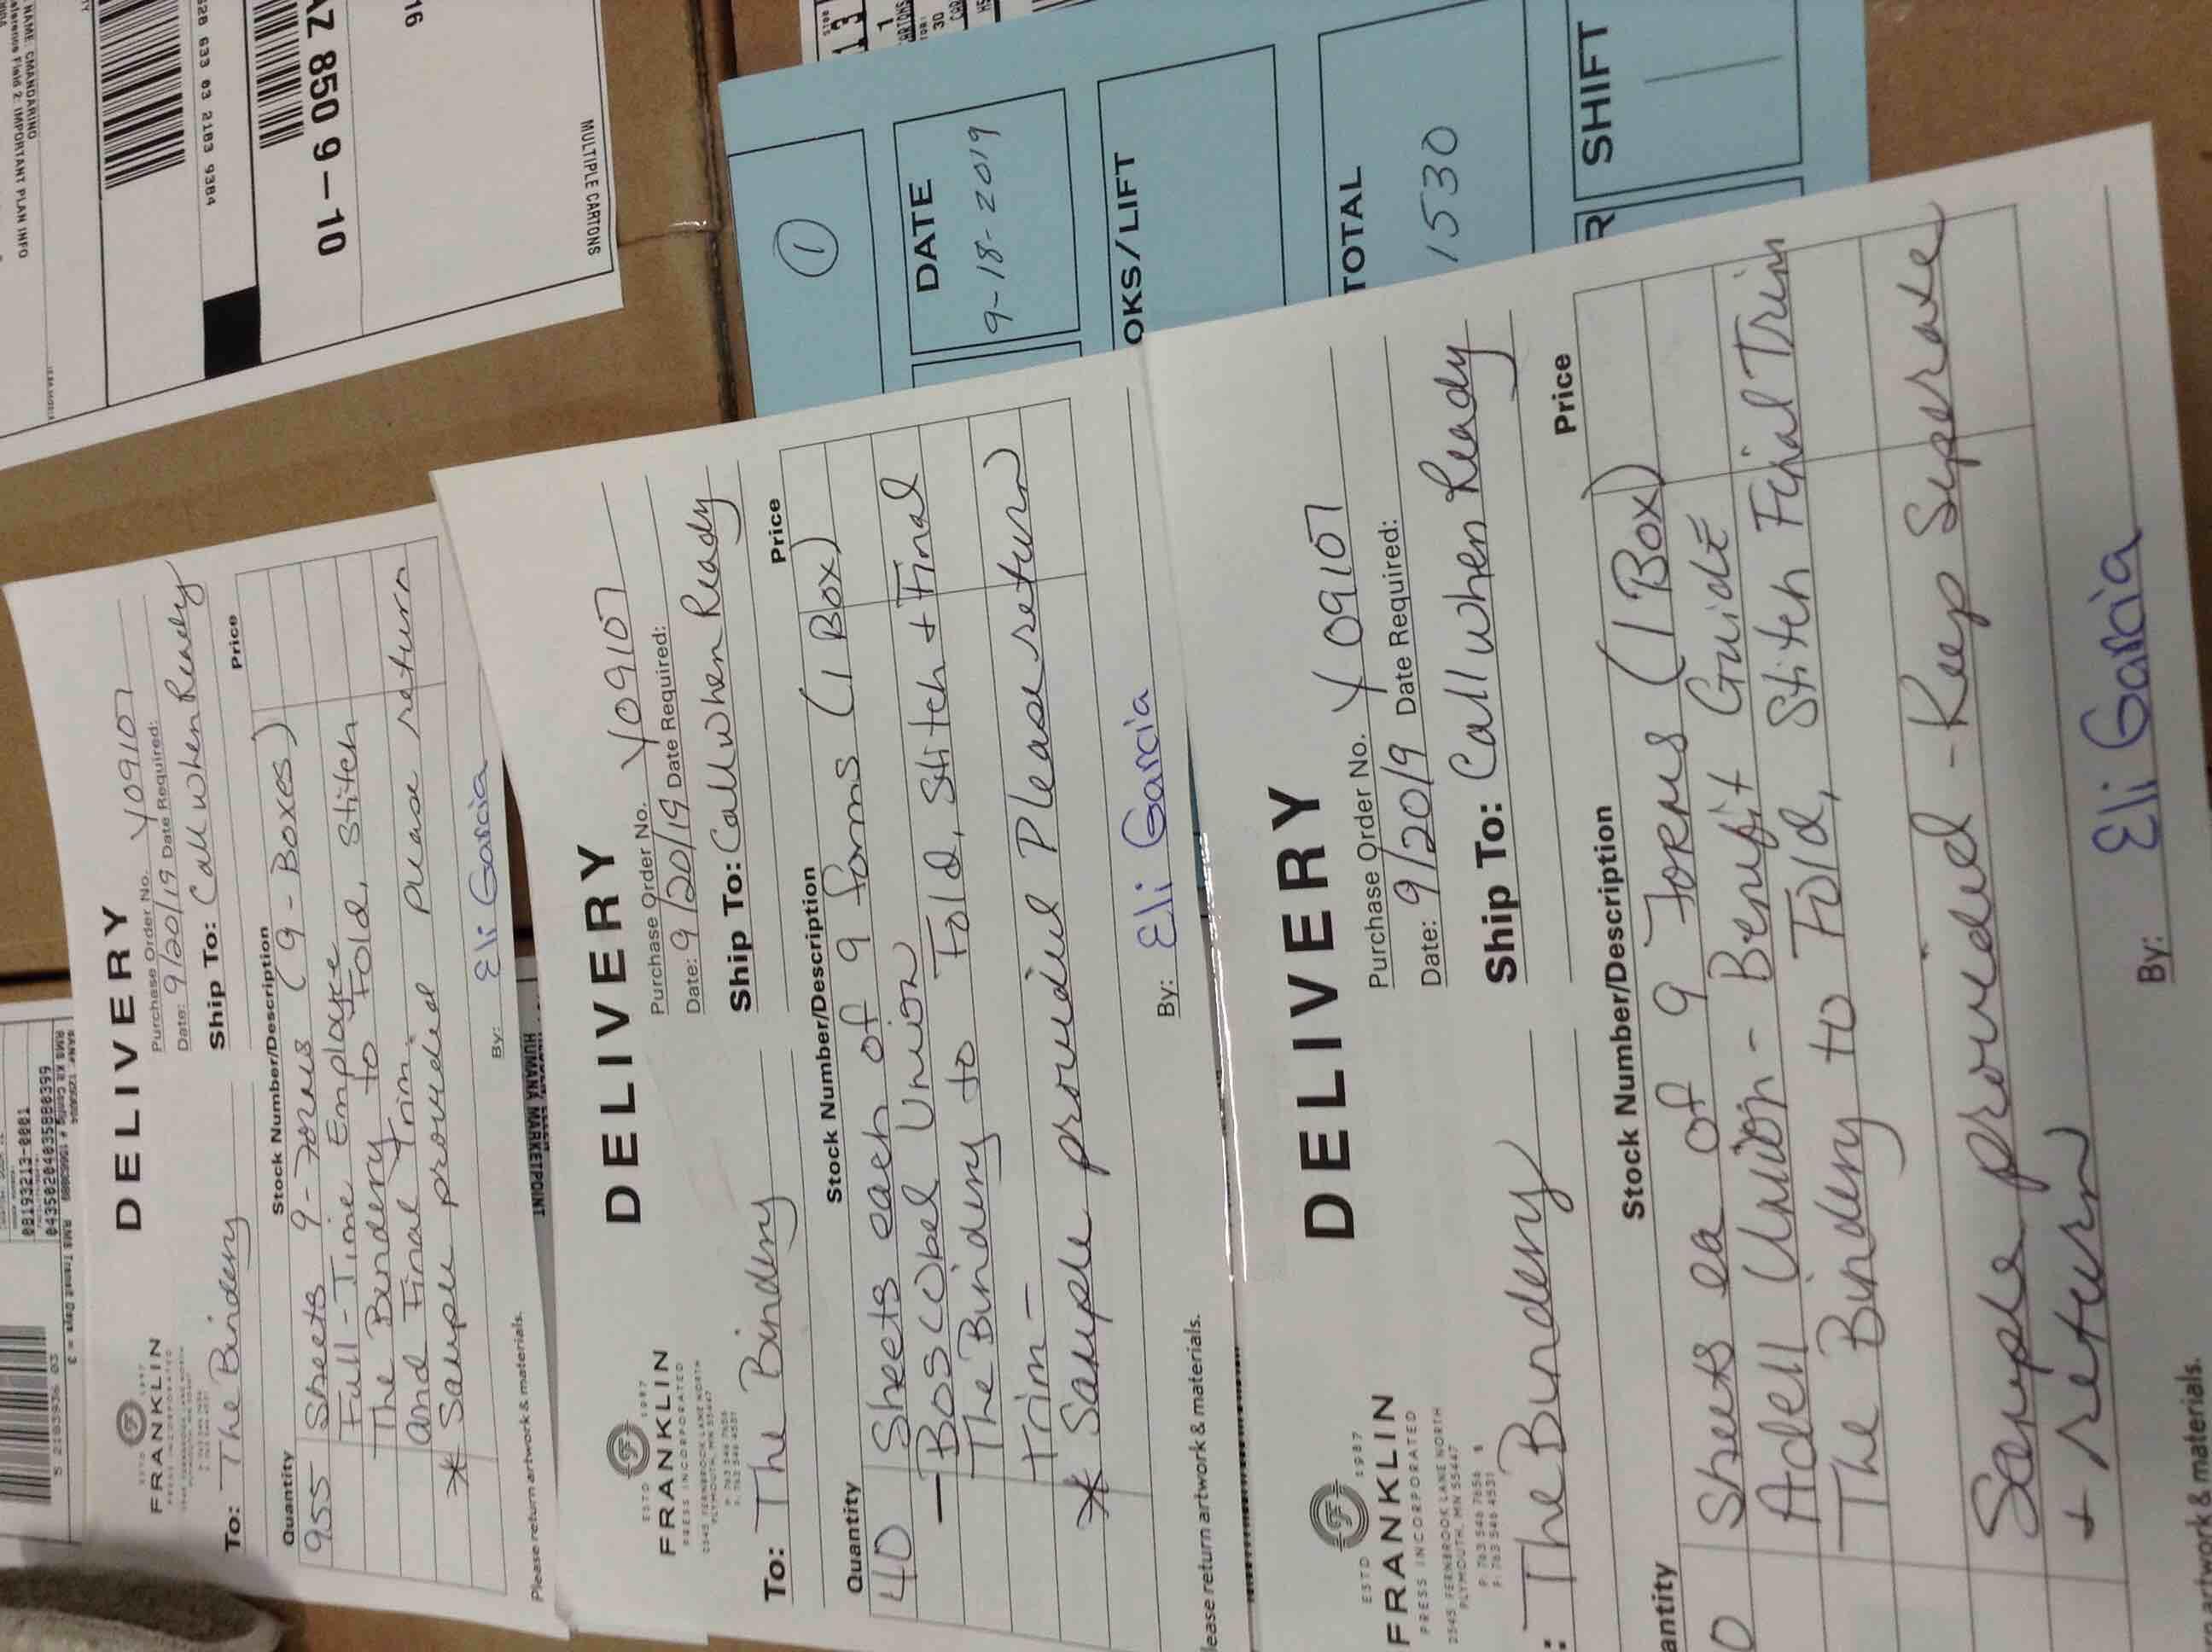 NAME: CMANDARINO
Reference Field 2: IMPORTANT PLAN INFO
628 633 03 2183 9384
AZ 850 9 - 10
16
MULTIPLE CARTONS
1
30
1
DATE
9-18-2019
OKS/LIFT
TOTAL
1530
R
SHIFT
1
00193213-0001
5 2183936 03
HUMANA MARKETPOINT
DELIVERY
ESTD 1987
FRANKLIN
Purchase Order No. Y09107
Date: 9/20/19 Date Required:
To: The Bindery
Ship To: Call when Ready
Quantity Stock Number/Description Price
955 Sheets 9-Forms (9-Boxes)
Full-Time Employee
The Bindery to Fold, Stitch
and Final Trim.
* Sample provided please return
By: Eli Garcia
Please return artwork & materials.
DELIVERY
ESTD 1987
FRANKLIN
PRESS INCORPORATED
2545 FERNBROOK LANE NORTH
PLYMOUTH, MN 55447
P: 763 546 7656
F: 763 546 4531
Purchase Order No. Y09107
Date: 9/20/19 Date Required:
To: The Bindery
Ship To: Call when Ready
Quantity Stock Number/Description Price
40 Sheets each of 9 forms (1 Box)
- Boscobel Union
The Bindery to Fold, Stitch + Final
Trim-
* Sample provided Please return
By: Eli Garcia
lease return artwork & materials.
DELIVERY
ESTD 1987
FRANKLIN
PRESS INCORPORATED
2545 FERNBROOK LANE NORTH
PLYMOUTH, MN 55447
P: 763 546 7656
F: 763 546 4531
Purchase Order No. Y09107
Date: 9/20/9 Date Required:
: The Bindery
Ship To: Call when Ready
antity Stock Number/Description Price
0 Sheets ea of 9 Forms (1 Box)
Adell Union - Benefit Guide
The Bindery to Fold, Stitch Final Trim
Sample provided - Keep Seperate
+ return
By: Eli Garcia
artwork & materials.